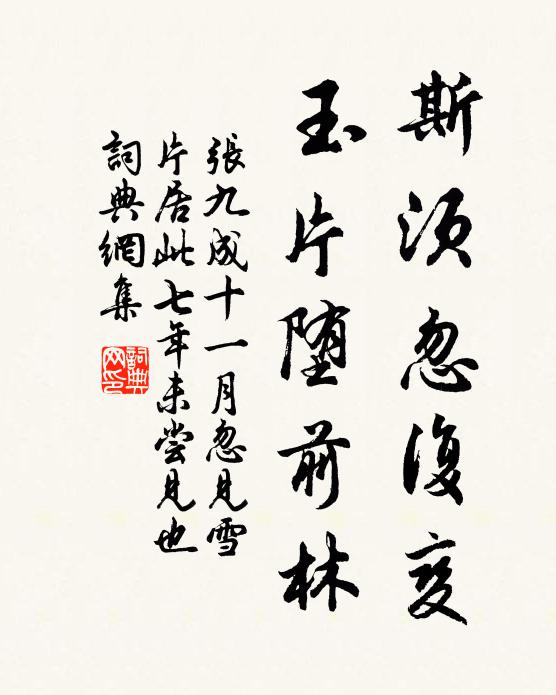 斯須忽復变
玉片堕前林
張九成十一月忽見雪
片居此七年未尝見也
詞典網集
詞典
网印